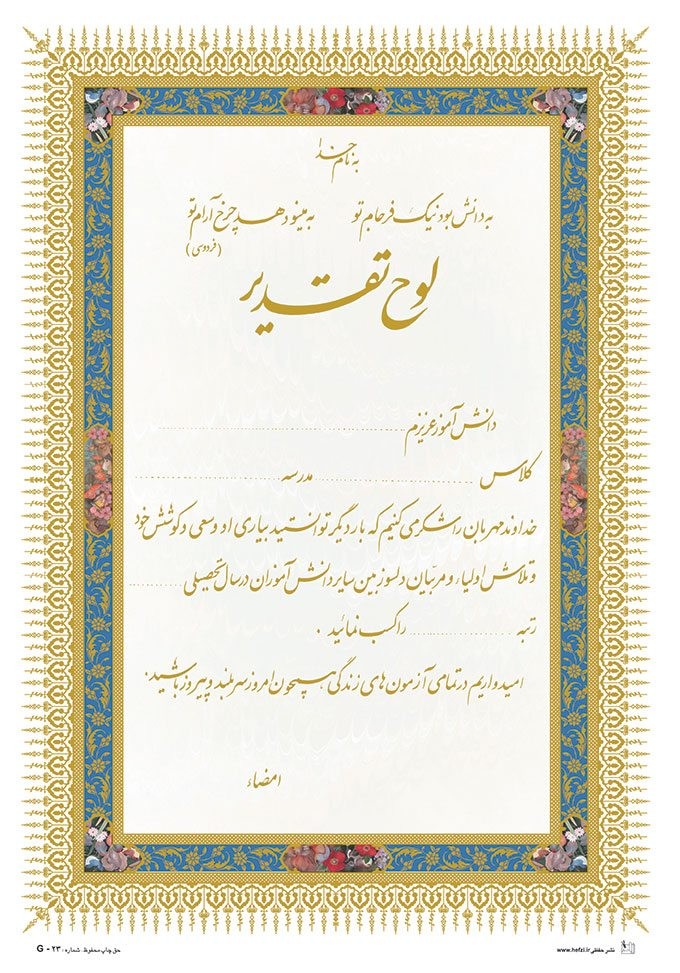 به نام خدا
به دانش بود نیک فرجام تو به مینو دهد چرخ آرام تو
(فردوسی)
لوح تقدیر
دانش آموز عزیزم ........................
کلاس ........................ مدرسه ........................
خداوند مهربان را شکر می کنیم که بار دیگر توانستید بیاری او و سعی و کوشش خود
و تلاش اولیاء و مربیان دلسوز بین سایر دانش آموزان در سال تحصیلی ............
رتبه ........................ را کسب نمائید .
امیدواریم در تمامی آزمون های زندگی همچون امروز سربلند و پیروز باشید.
امضاء
نشر حفظی www.hefzi.ir
حق چاپ محفوظ . شماره : ۲۳ - G